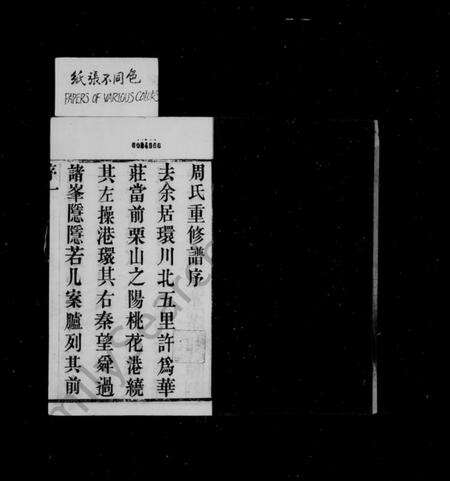 紙張不同色
PAPERS OF VARIOUS COLORS
0084866
周氏重修譜序
去余居環川北五里許爲華
莊當前栗山之陽桃花港繞
其左操港環其右秦望舜過
諸峯隱隱若几案臚列其前
序一